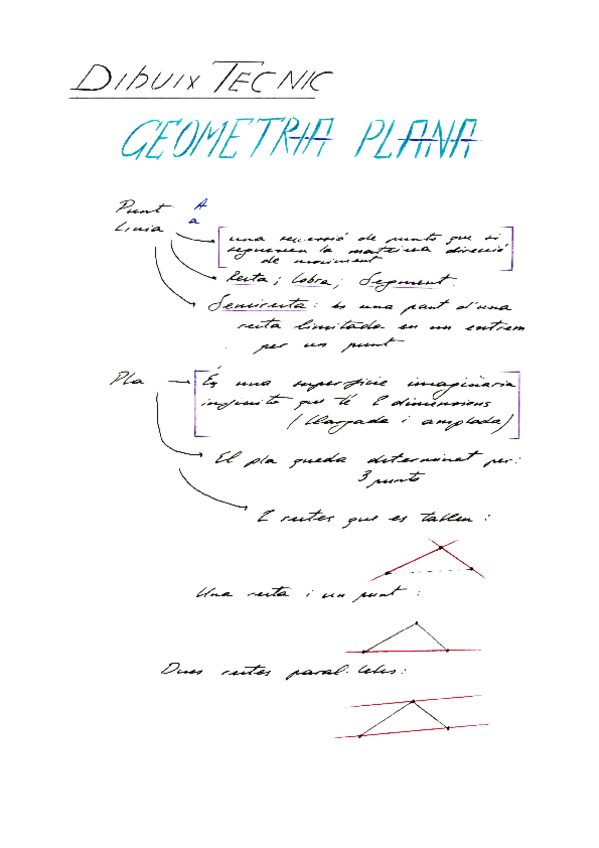 DIBUIX TECNIC
GEOMETRIA PLANA
Punt A
Linia a
una successió de punts que si
segueixen la mateixa direcció
de moviment
Recta; Corba; Segment.
Semirecta: és una part d'una
recta limitada en un extrem
per un punt
Pla És una superfície imaginària
infinita que té 2 dimensions
(llargada i amplada)
El pla queda determinat per:
3 punts
2 rectes que es tallen:
Una recta i un punt:
Dues rectes paral·leles: